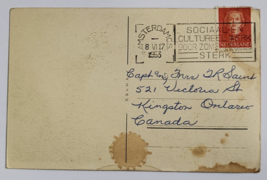 AMSTERDAM
8 VI 17
1953
SOCIAAL
CULTUREEL WERK
DOOR ZOMERZEGELS
STERK
NEDERLAND
Capt & Mrs T R Saint
521 Victoria St
Kingston Ontario
Canada